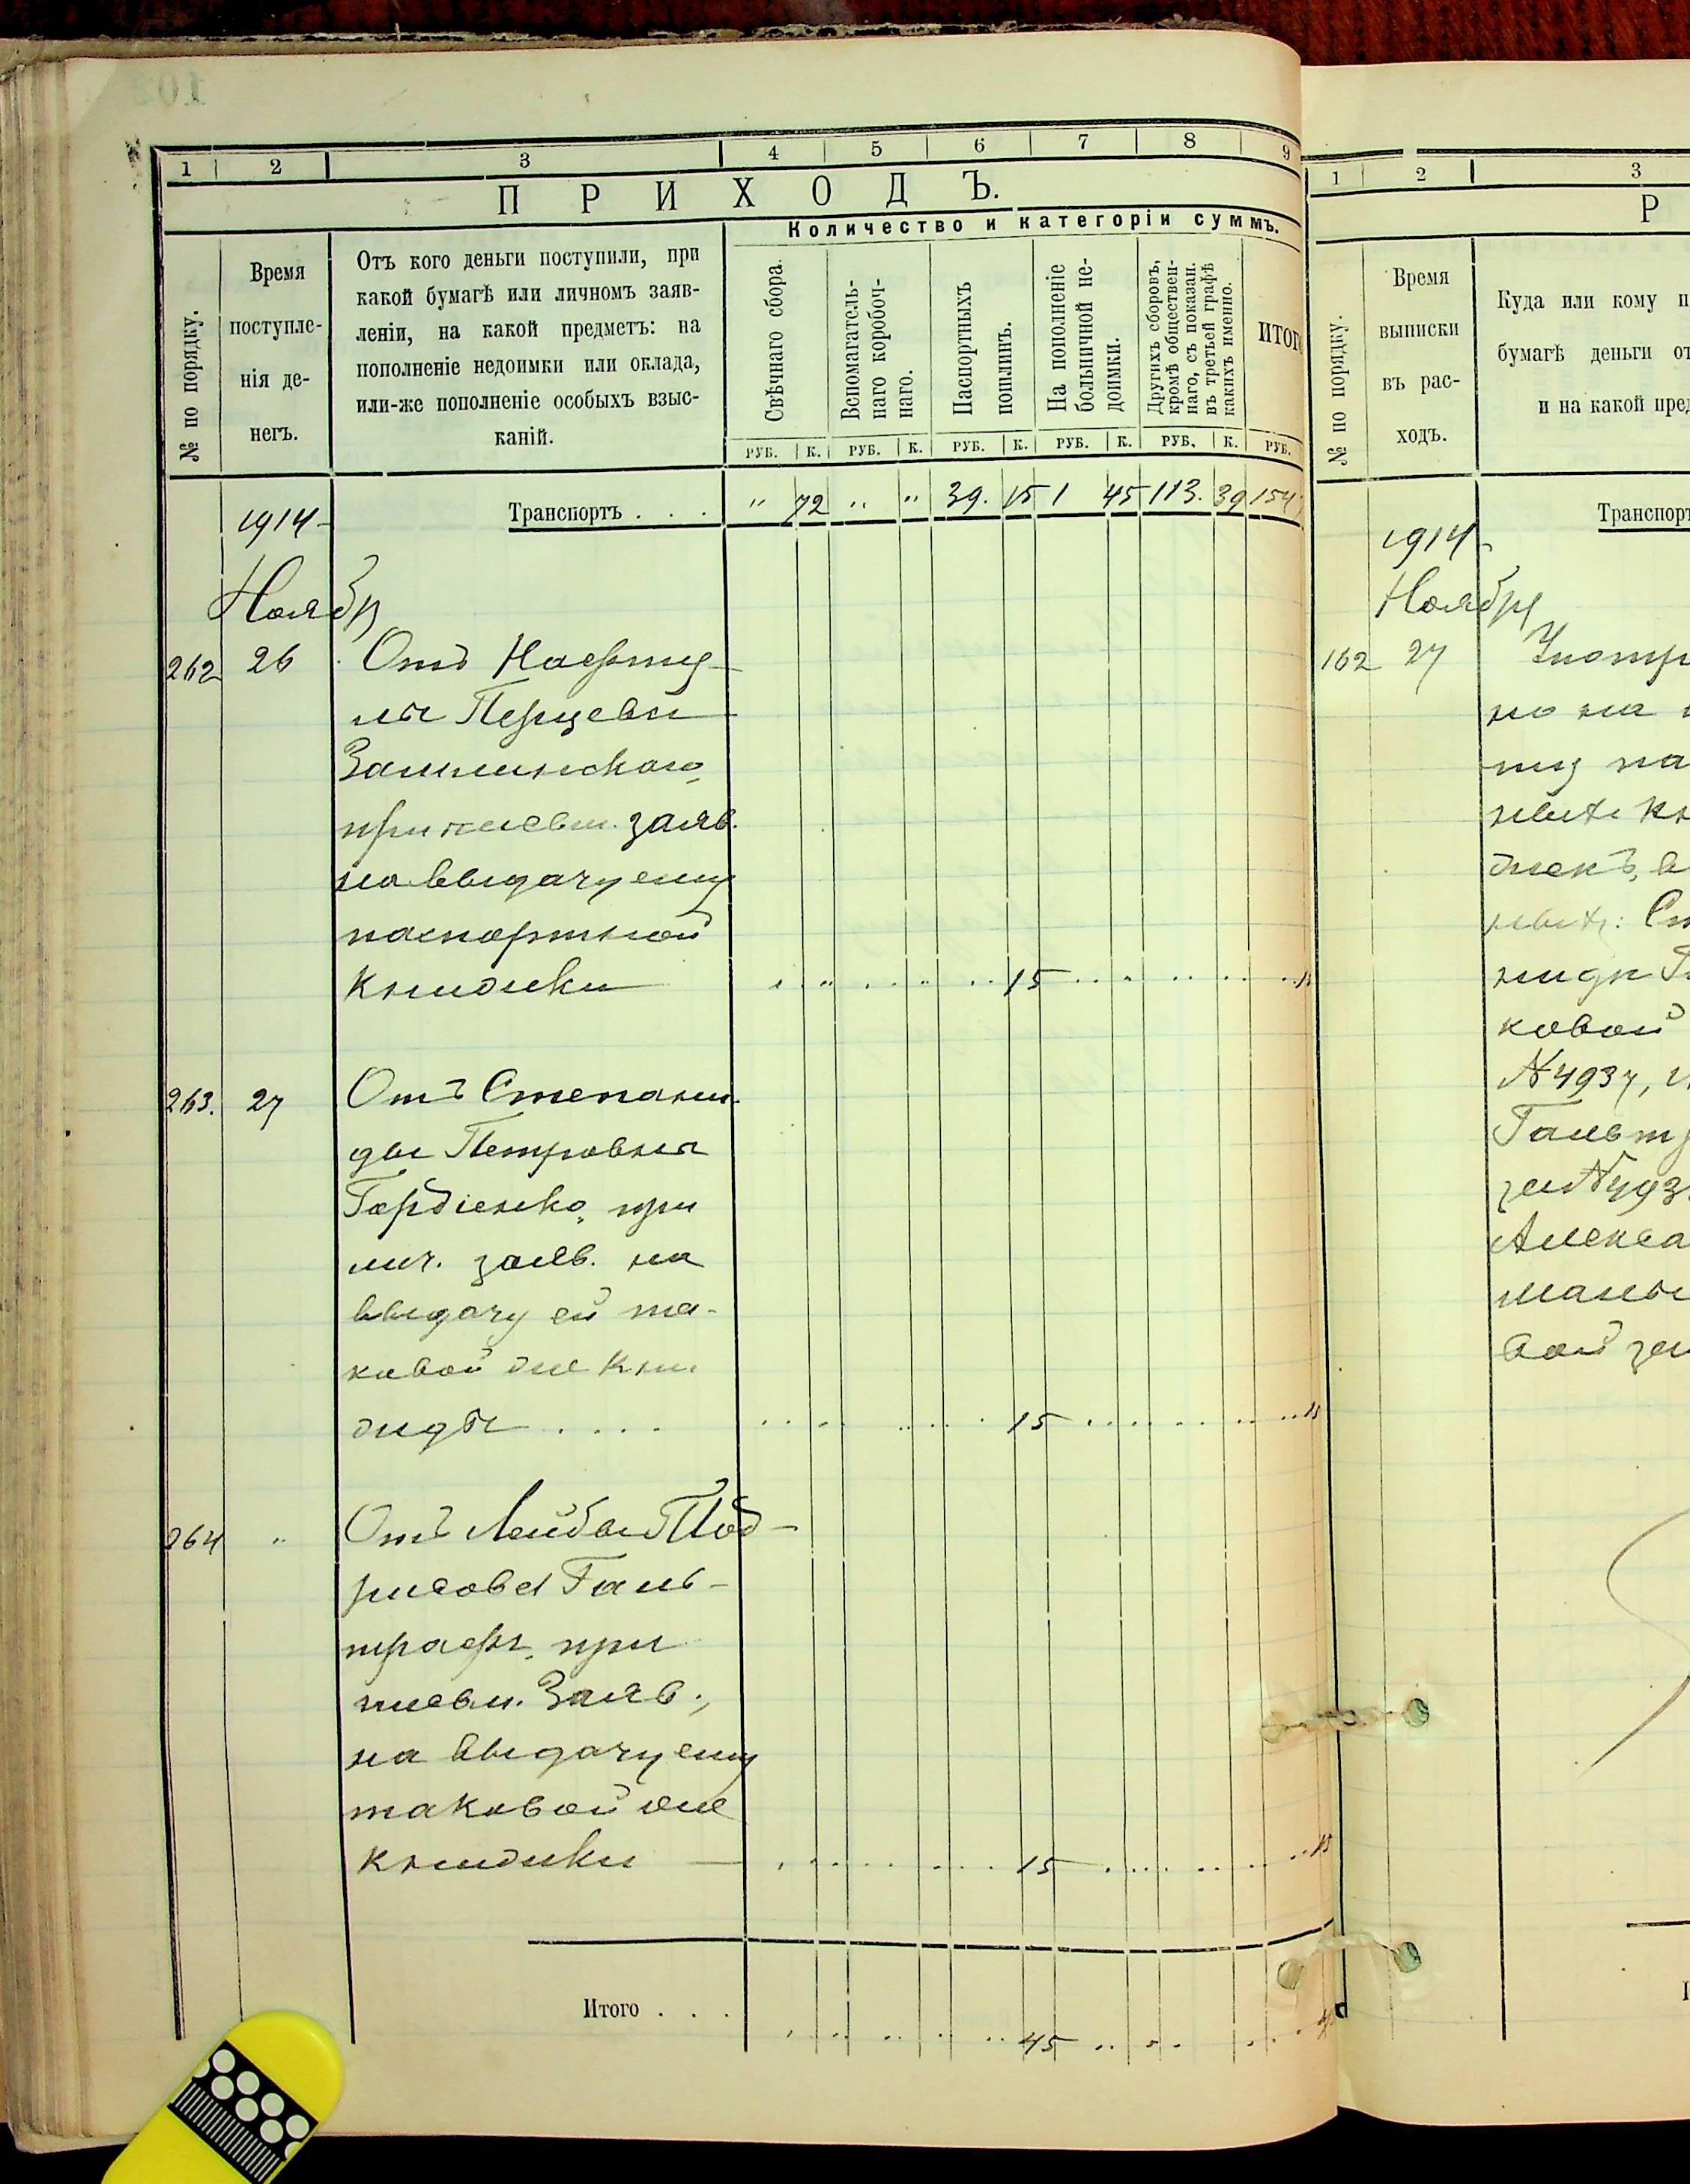 1 2 3 4 5 6 7 8 9
ПРИХОДЪ.
Количество и категоріи суммъ.
№ по порядку.
Время
поступле-
нія де-
негъ.
Отъ кого деньги поступили, при
какой бумагѣ или личномъ заяв-
леніи, на какой предметъ: на
пополненіе недоимки или оклада,
или-же пополненіе особыхъ взыс-
каній.
Свѣчнаго сбора.
Вспомагатель-
наго коробоч-
наго.
Паспортныхъ
пошлинъ.
На пополненіе
больничной не-
доимки.
Другихъ сборовъ,
кромѣ обществен-
наго, съ показан.
въ третьей графѣ
какихъ именно.
ИТОГО
РУБ. К. РУБ. К. РУБ. К. РУБ. К. РУБ. К. РУБ.
1914 Транспортъ . . . " 72 " " 39. 15 1 45 113. 39 154
Ноября
262 26 Отъ Нафту-
лы Перцева
Заслинскаго
при письм. заяв.
на выдачу ему
паспортной
книжки 15 15
263. 27 Отъ Степани-
ды Петровны
Гордіенко, при
лич. заяв. на
выдачу ей та-
ковой же кни-
жицы . . . . 15 15
264 " Отъ Лейбы
Галь-
при
письм. заяв.,
на выдачу ему
таковой же
книжки — 15 15
Итого . . . 45 45
1 2 3
Р
№ по порядку.
Время
выписки
въ рас-
ходъ.
Куда или кому п
бумагѣ деньги от
и на какой пред
Транспорт
1914
Ноября
162 27 Употр
но на
ту па
жекъ, в
Ст
ниды Г
ковой
№ 4937, и
Гальт
Алекса